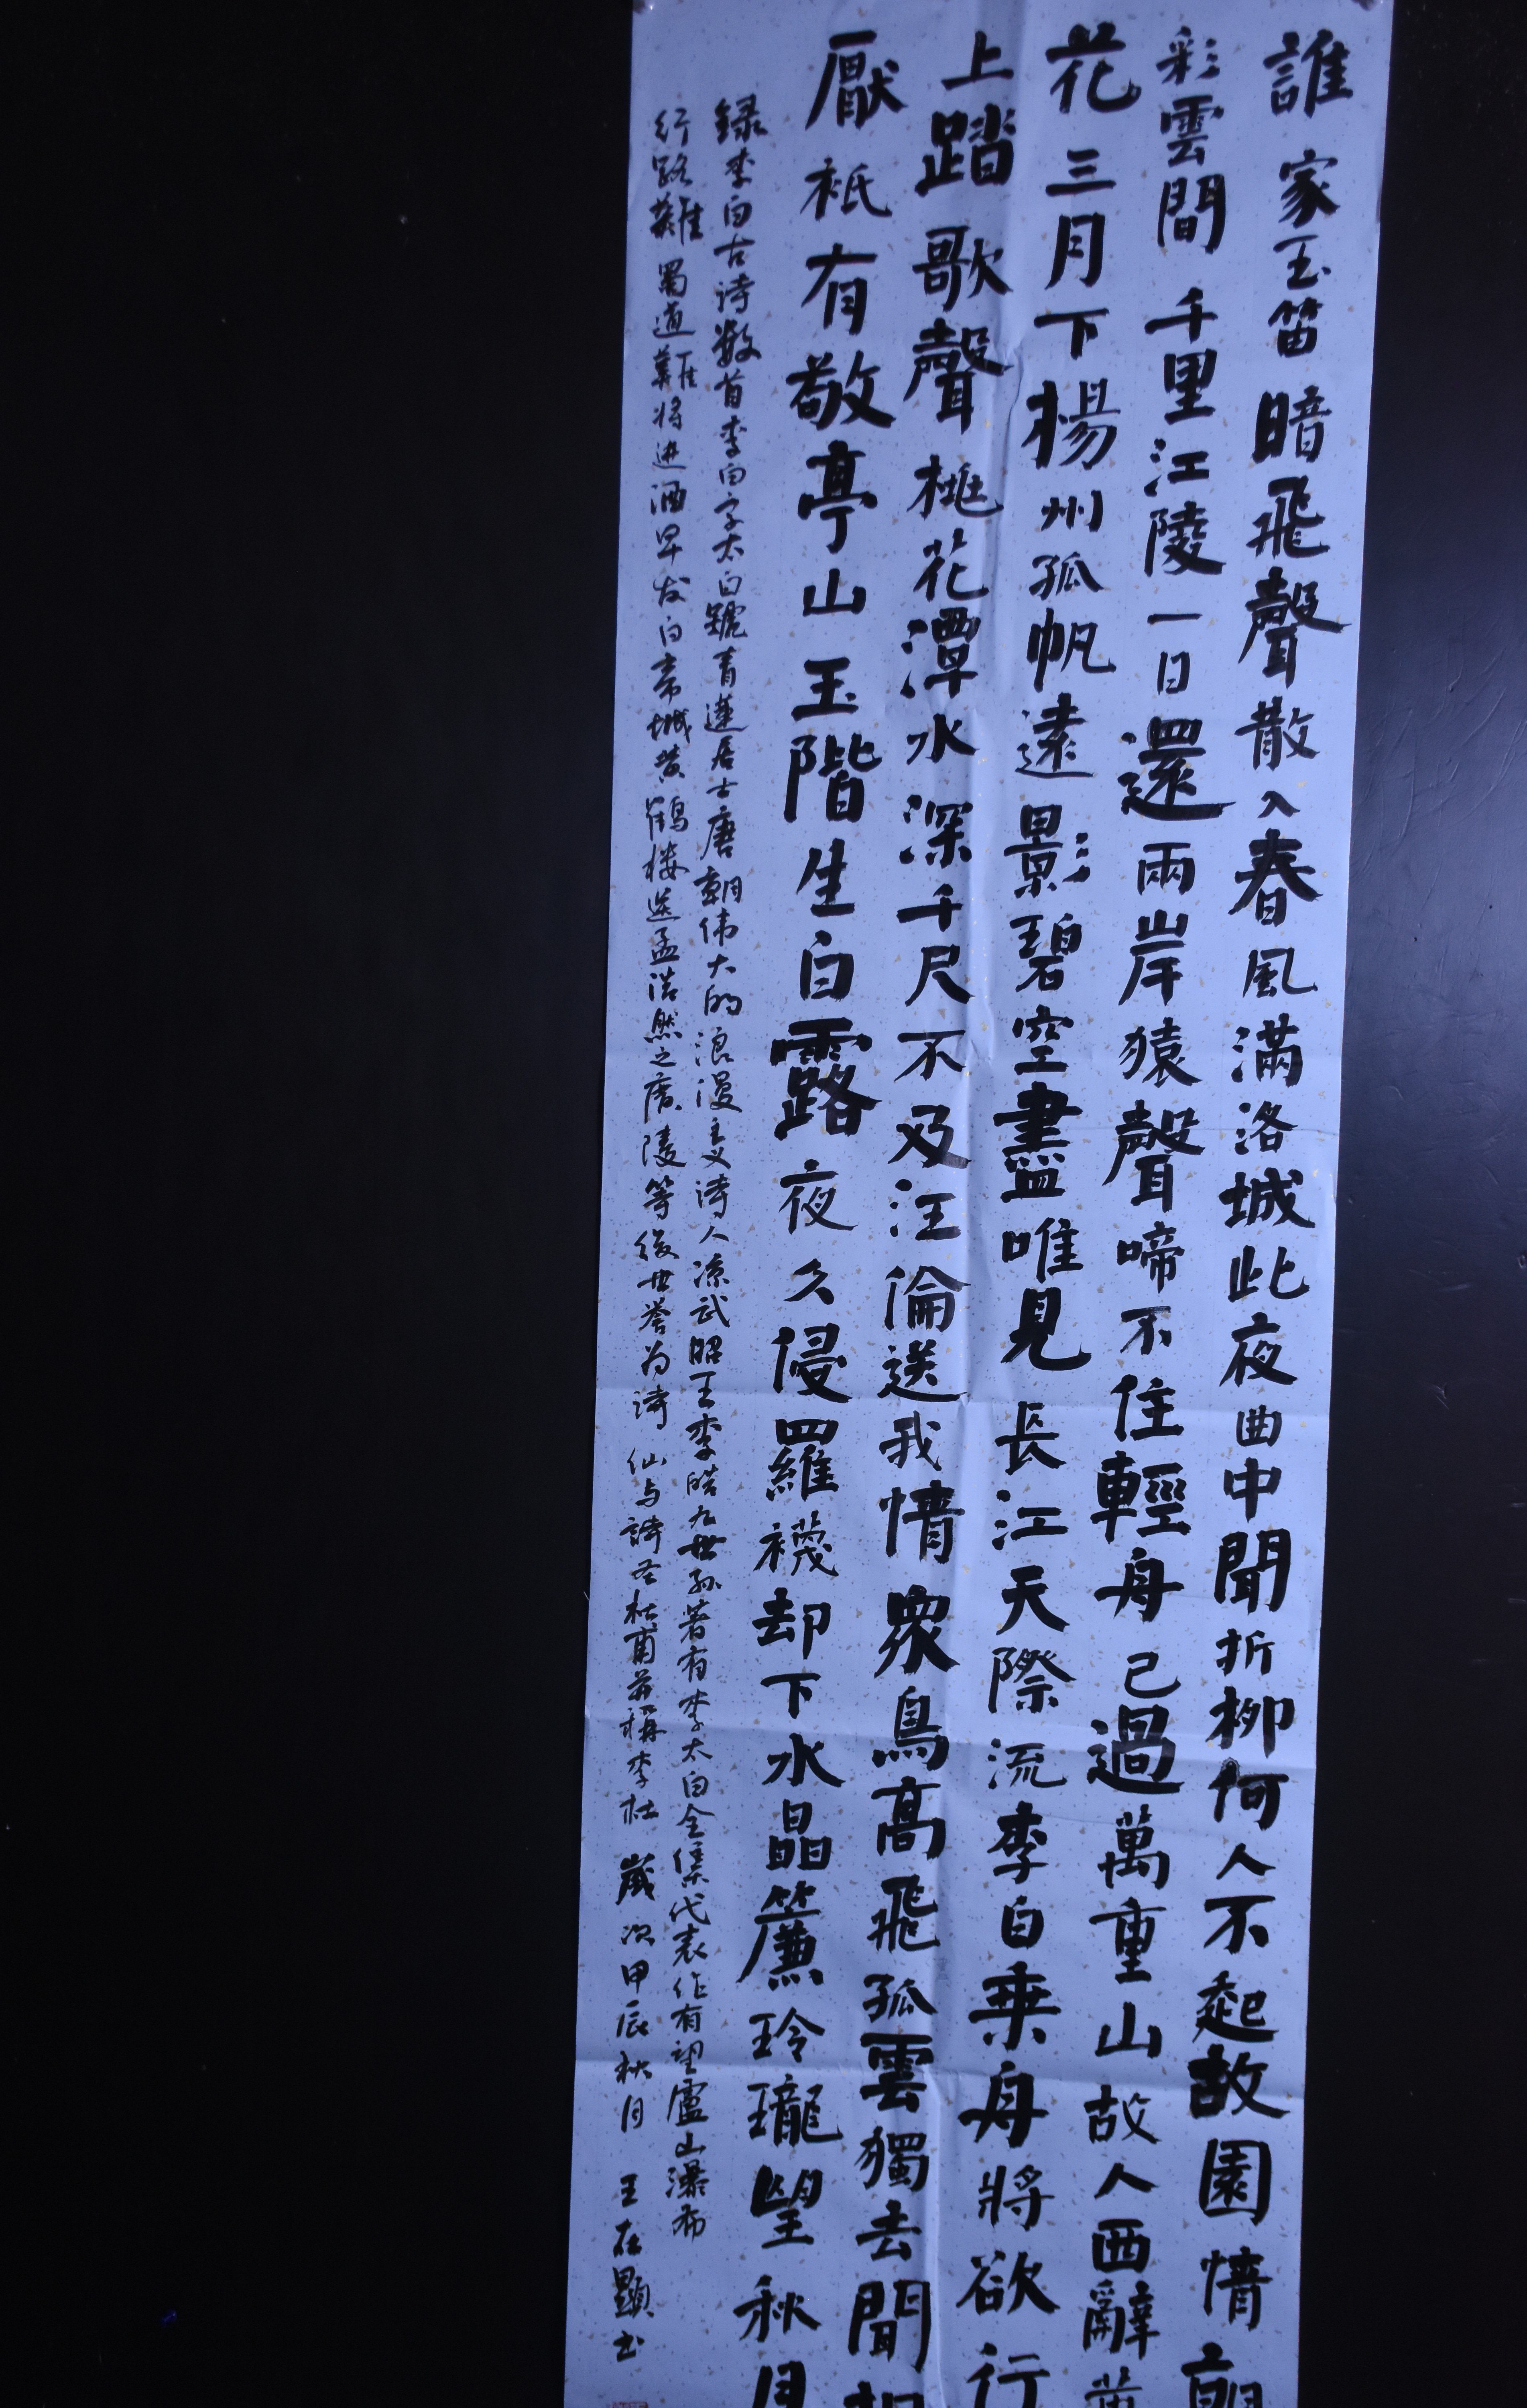 誰家玉笛暗飛聲散入春風滿洛城此夜曲中聞折柳何人不起故園情朝
彩雲間千里江陵一日還兩岸猿聲啼不住輕舟已過萬重山故人西辭黃
花三月下揚州孤帆遠影碧空盡唯見長江天際流李白乘舟將欲行
上踏歌聲桃花潭水深千尺不及汪倫送我情眾鳥高飛孤雲獨去閒相
厭衹有敬亭山玉階生白露夜久侵羅襪却下水晶簾玲瓏望秋月
録李白古诗数首李白字太白號青蓮居士唐朝伟大的浪漫主义诗人凉武昭王李皓九世孙著有李太白全集代表作有望廬山瀑布
行路難蜀道難将进酒早发白帝城黄鹤楼送孟浩然之廣陵等後世誉为诗仙与詩圣杜甫并稱李杜歲次甲辰秋月王在顯书